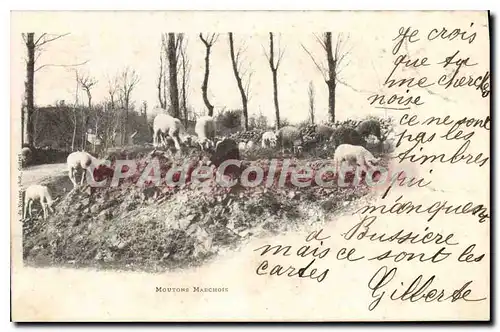 je crois
que tu
me cherches
noise
ce ne sont
pas les
timbres
qui
manquent
a Bussière
mais ce sont les
cartes
Gilberte
MOUTONS MARCHOIS
SPC